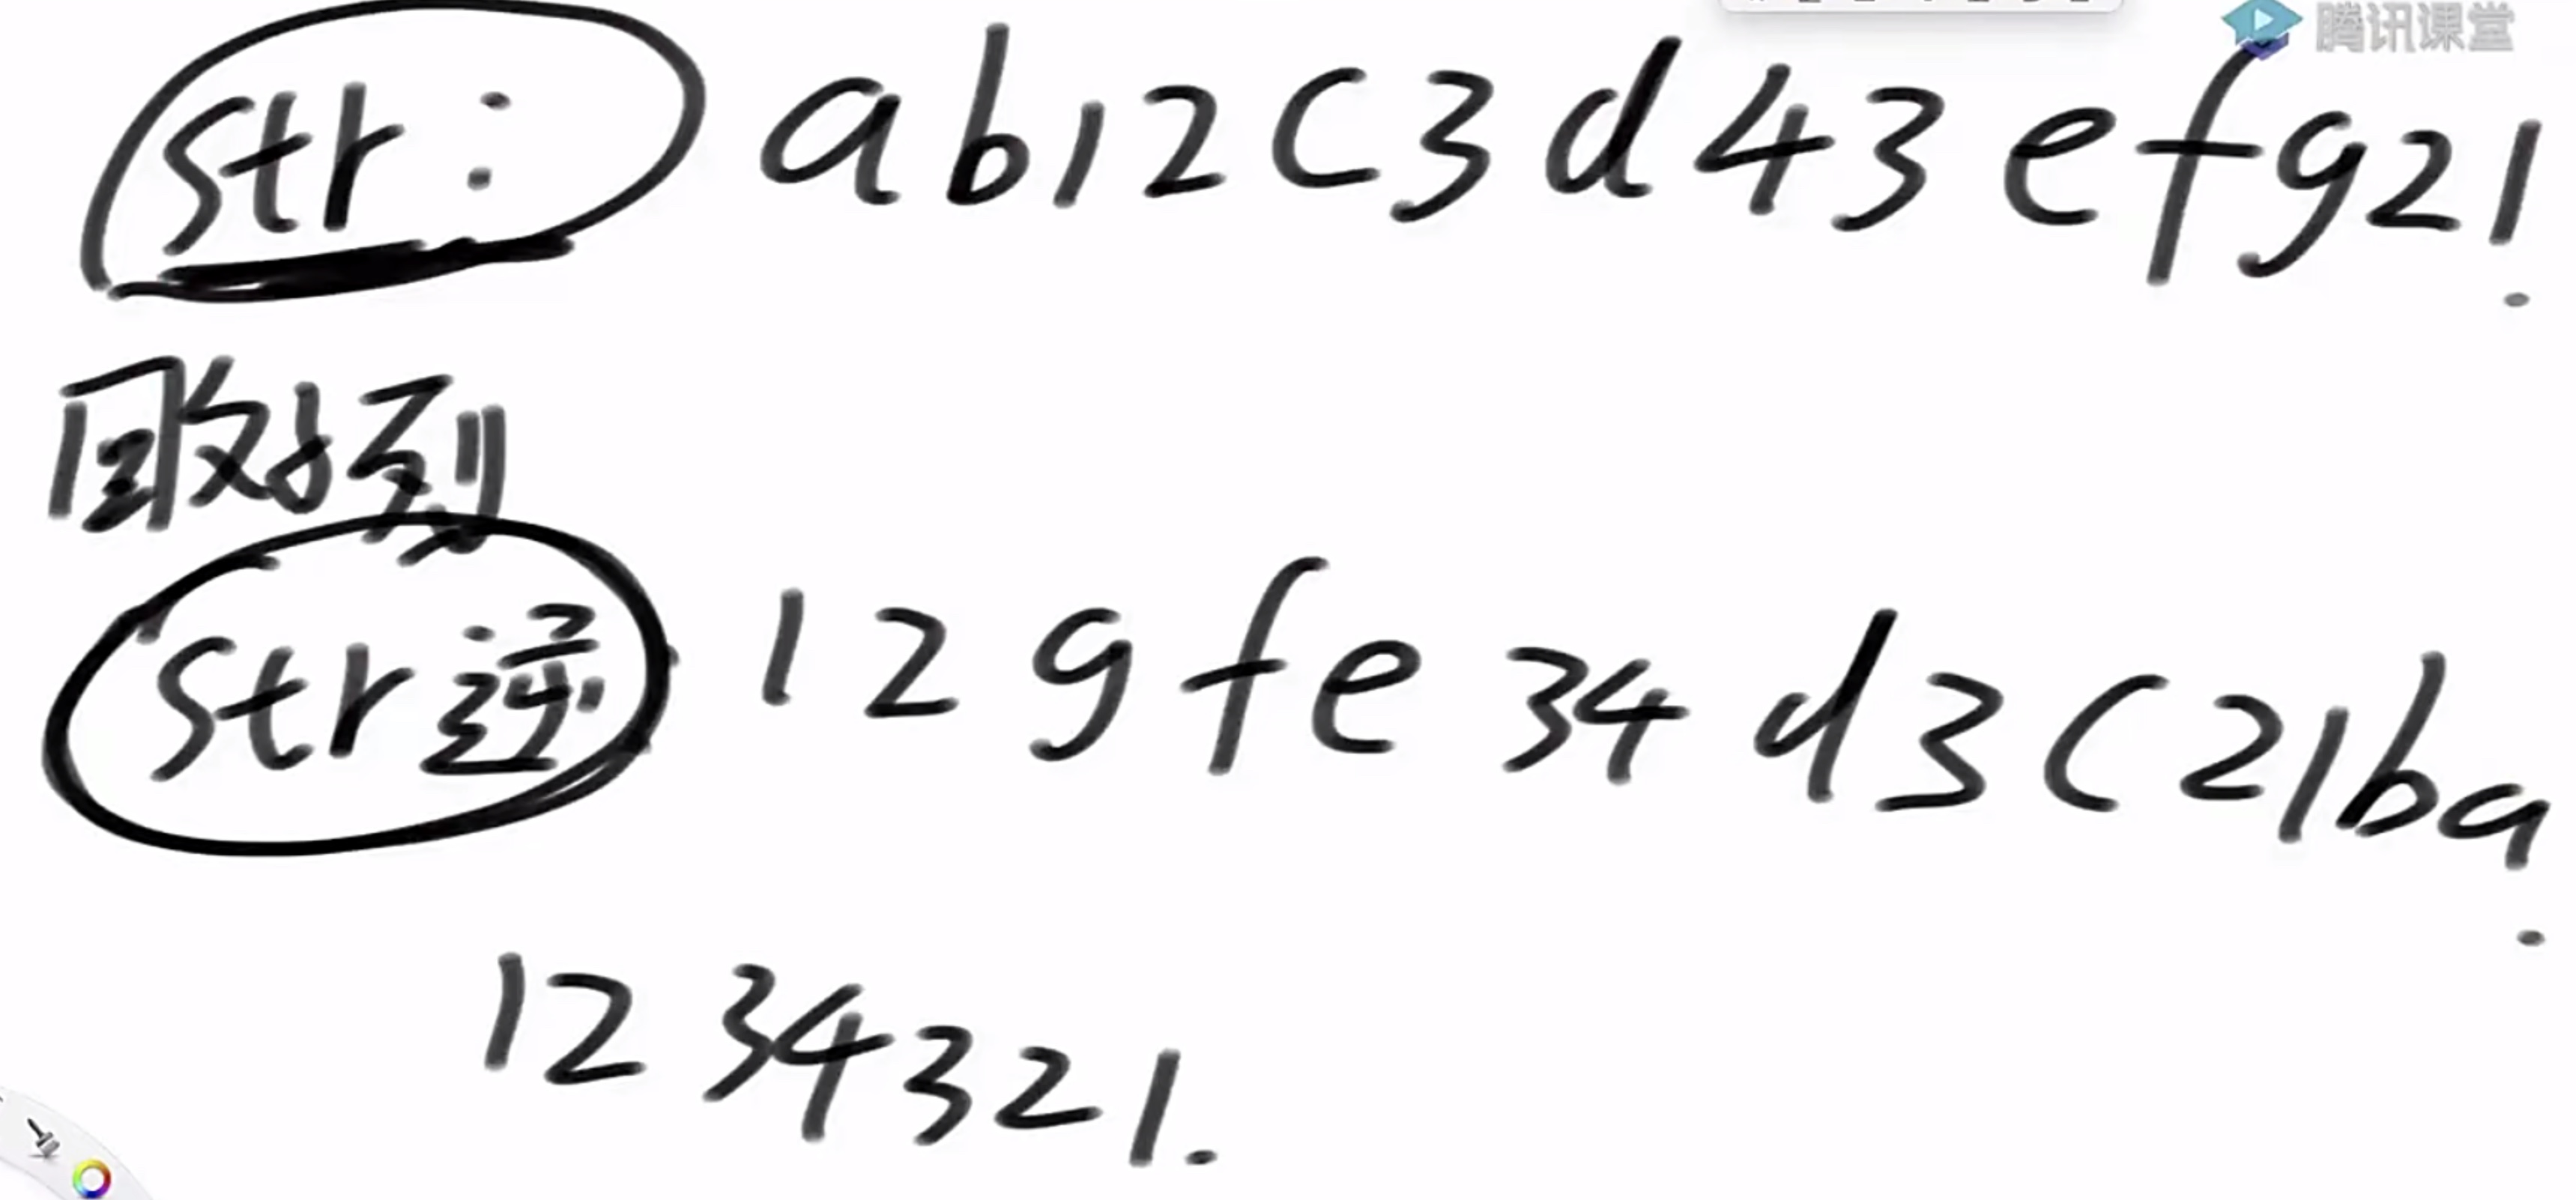 腾讯课堂
str: ab12c3d43efg21.
str逆 12gfe34d3c21ba.
1234321.